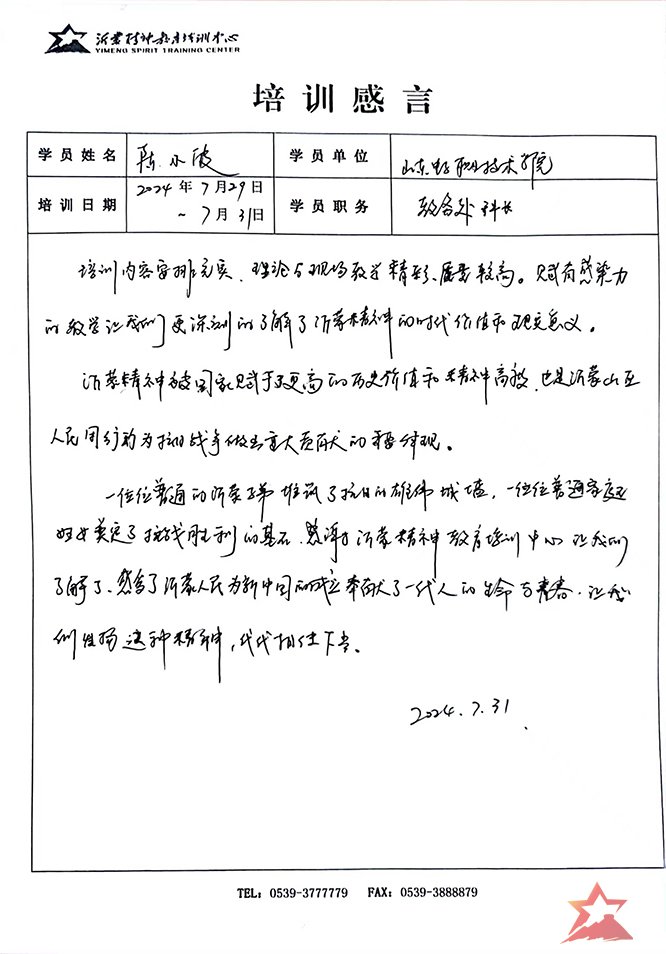 沂蒙精神教育培训中心
YIMENG SPIRIT TRAINING CENTER
培训感言
学员姓名 陈小波 学员单位 山东 职业技术学院
培训日期 2024年7月29日 ~7月31日 学员职务 教务处 科长
培训内容安排充实、理论与现场教学精彩、质量较高。赋有感染力
的教学让我们更深刻的了解了沂蒙精神的时代价值和现实意义。
沂蒙精神被国家赋予了更高的历史价值和精神高度，也是沂蒙山区
人民用行动为抗日战争做出重大贡献的重要体现。
一位位普通的沂蒙子弟堆筑了抗日的雄伟城墙，一位位普通家庭
妇女奠定了抗战胜利的基石，感谢沂蒙精神教育培训中心让我们
了解了、感念了沂蒙人民为新中国的成立奉献了一代人的生命与青春，让我
们发扬这种精神，代代相传下去。
2024.7.31
TEL: 0539-3777779 FAX: 0539-3888879